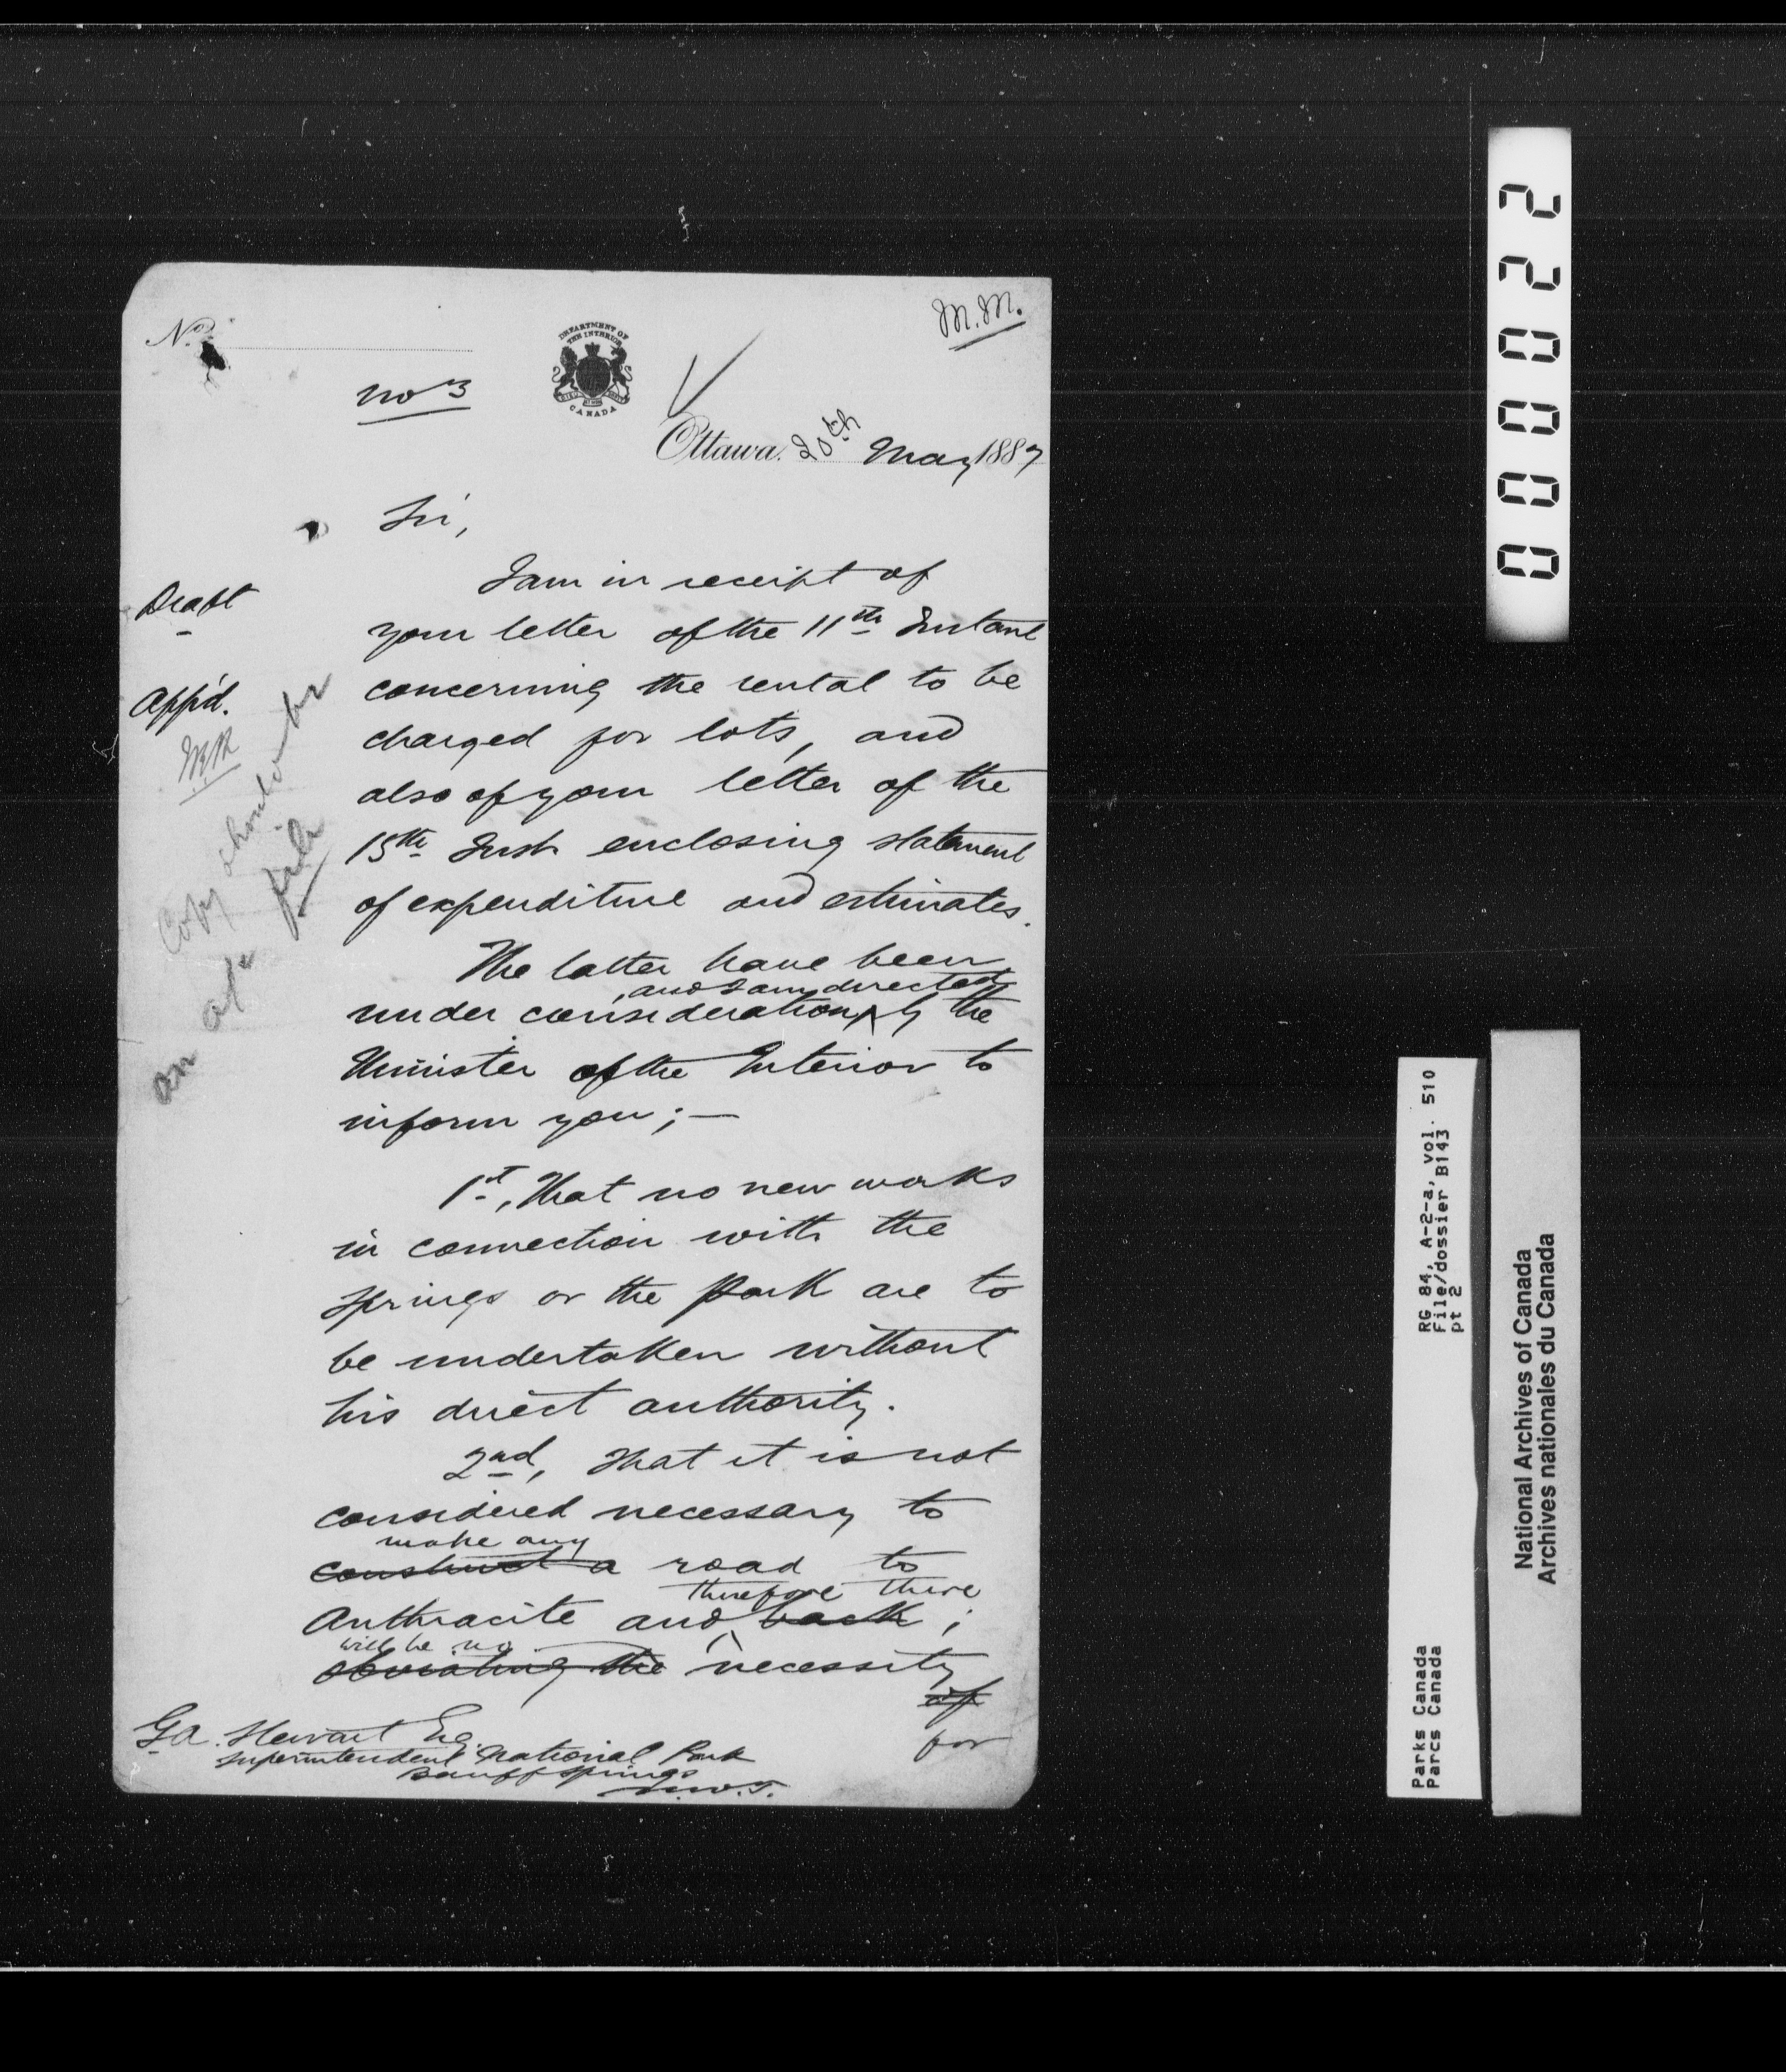 M.M.
No.
DEPARTMENT OF
THE INTERIOR
CANADA
no 3
Ottawa. 20th May 1887
Sir,
I am in receipt of
Draft
your letter of the 11th Instant
concerning the rental to be
App'd.
charged for lots, and
also of your letter of the
15th Inst enclosing statement
of expenditure and estimates.
Copy should be
on file
The latter have been
, and I am directed
under consideration by the
Minister of the Interior to
inform you ; —
1st, That no new works
in connection with the
Springs or the Park are to
be undertaken without
his direct authority.
2nd, That it is not
considered necessary to
make any
construct a road to
therefore there
Anthracite and back ;
will be no
obviating the necessity
of
for
G.A. Stewart Esq.
Superintendent National Park
Banff Springs
N.W.T.
000022
RG 84, A-2-a, vol. 510
File/dossier B143
pt 2
Parks Canada
Parcs Canada
National Archives of Canada
Archives nationales du Canada